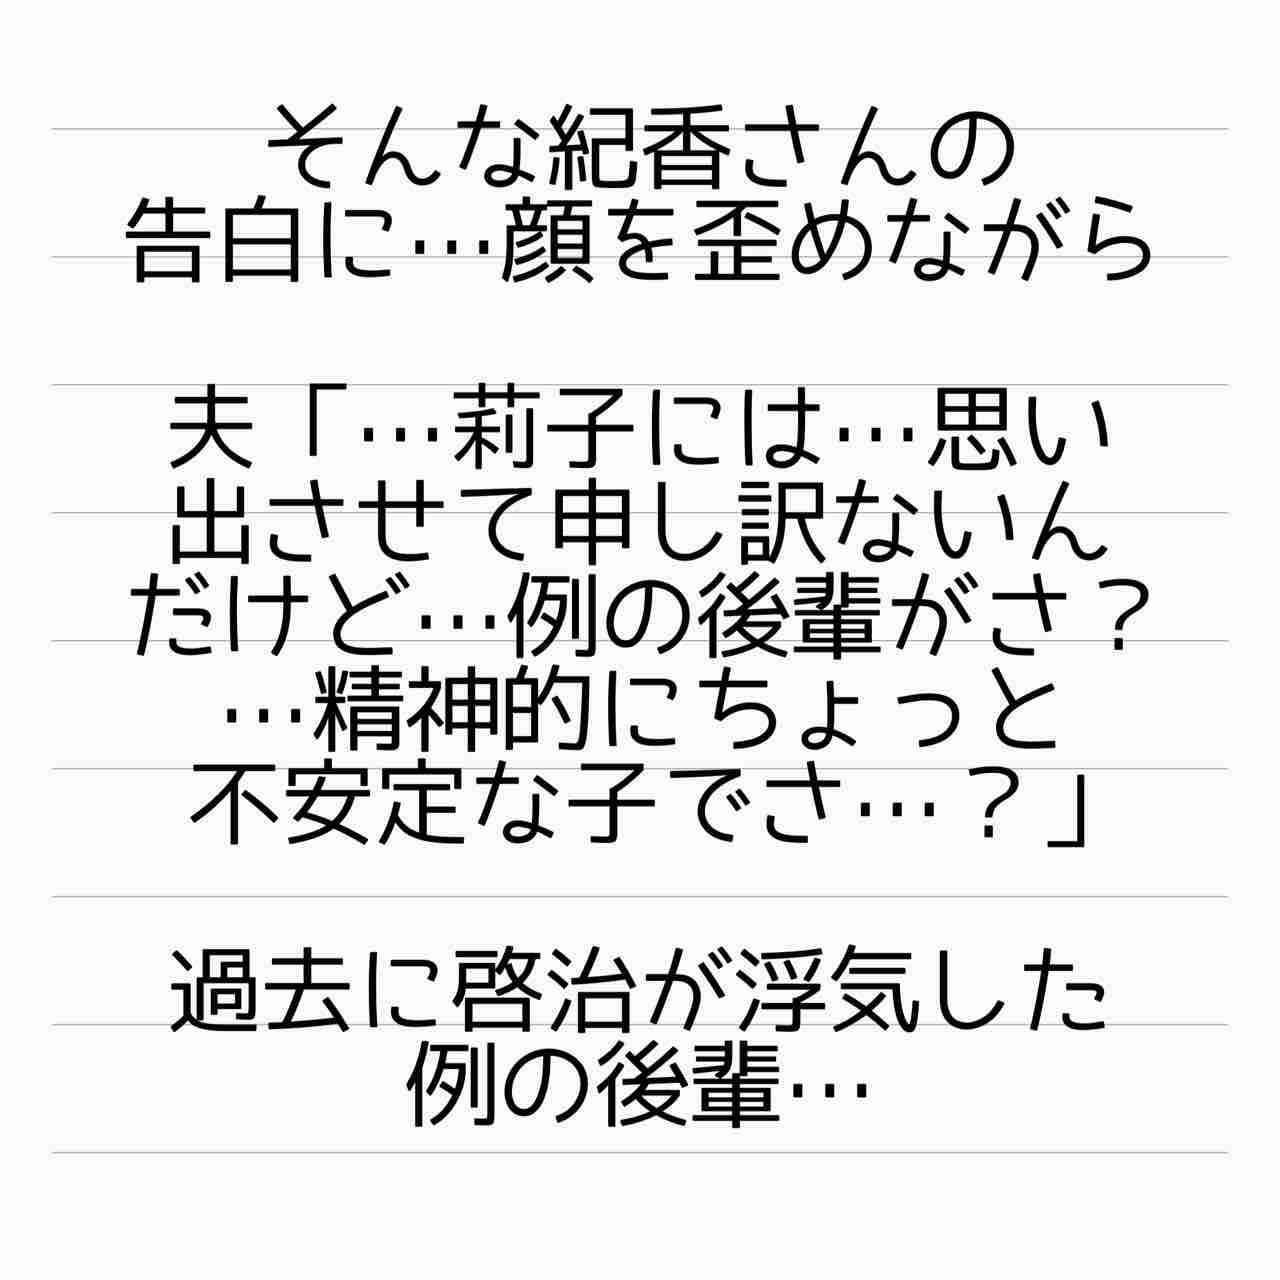 そんな紀香さんの
告白に…顔を歪めながら
夫「…莉子には…思い
出させて申し訳ないん
だけど…例の後輩がさ？
…精神的にちょっと
不安定な子でさ…？」
過去に啓治が浮気した
例の後輩…